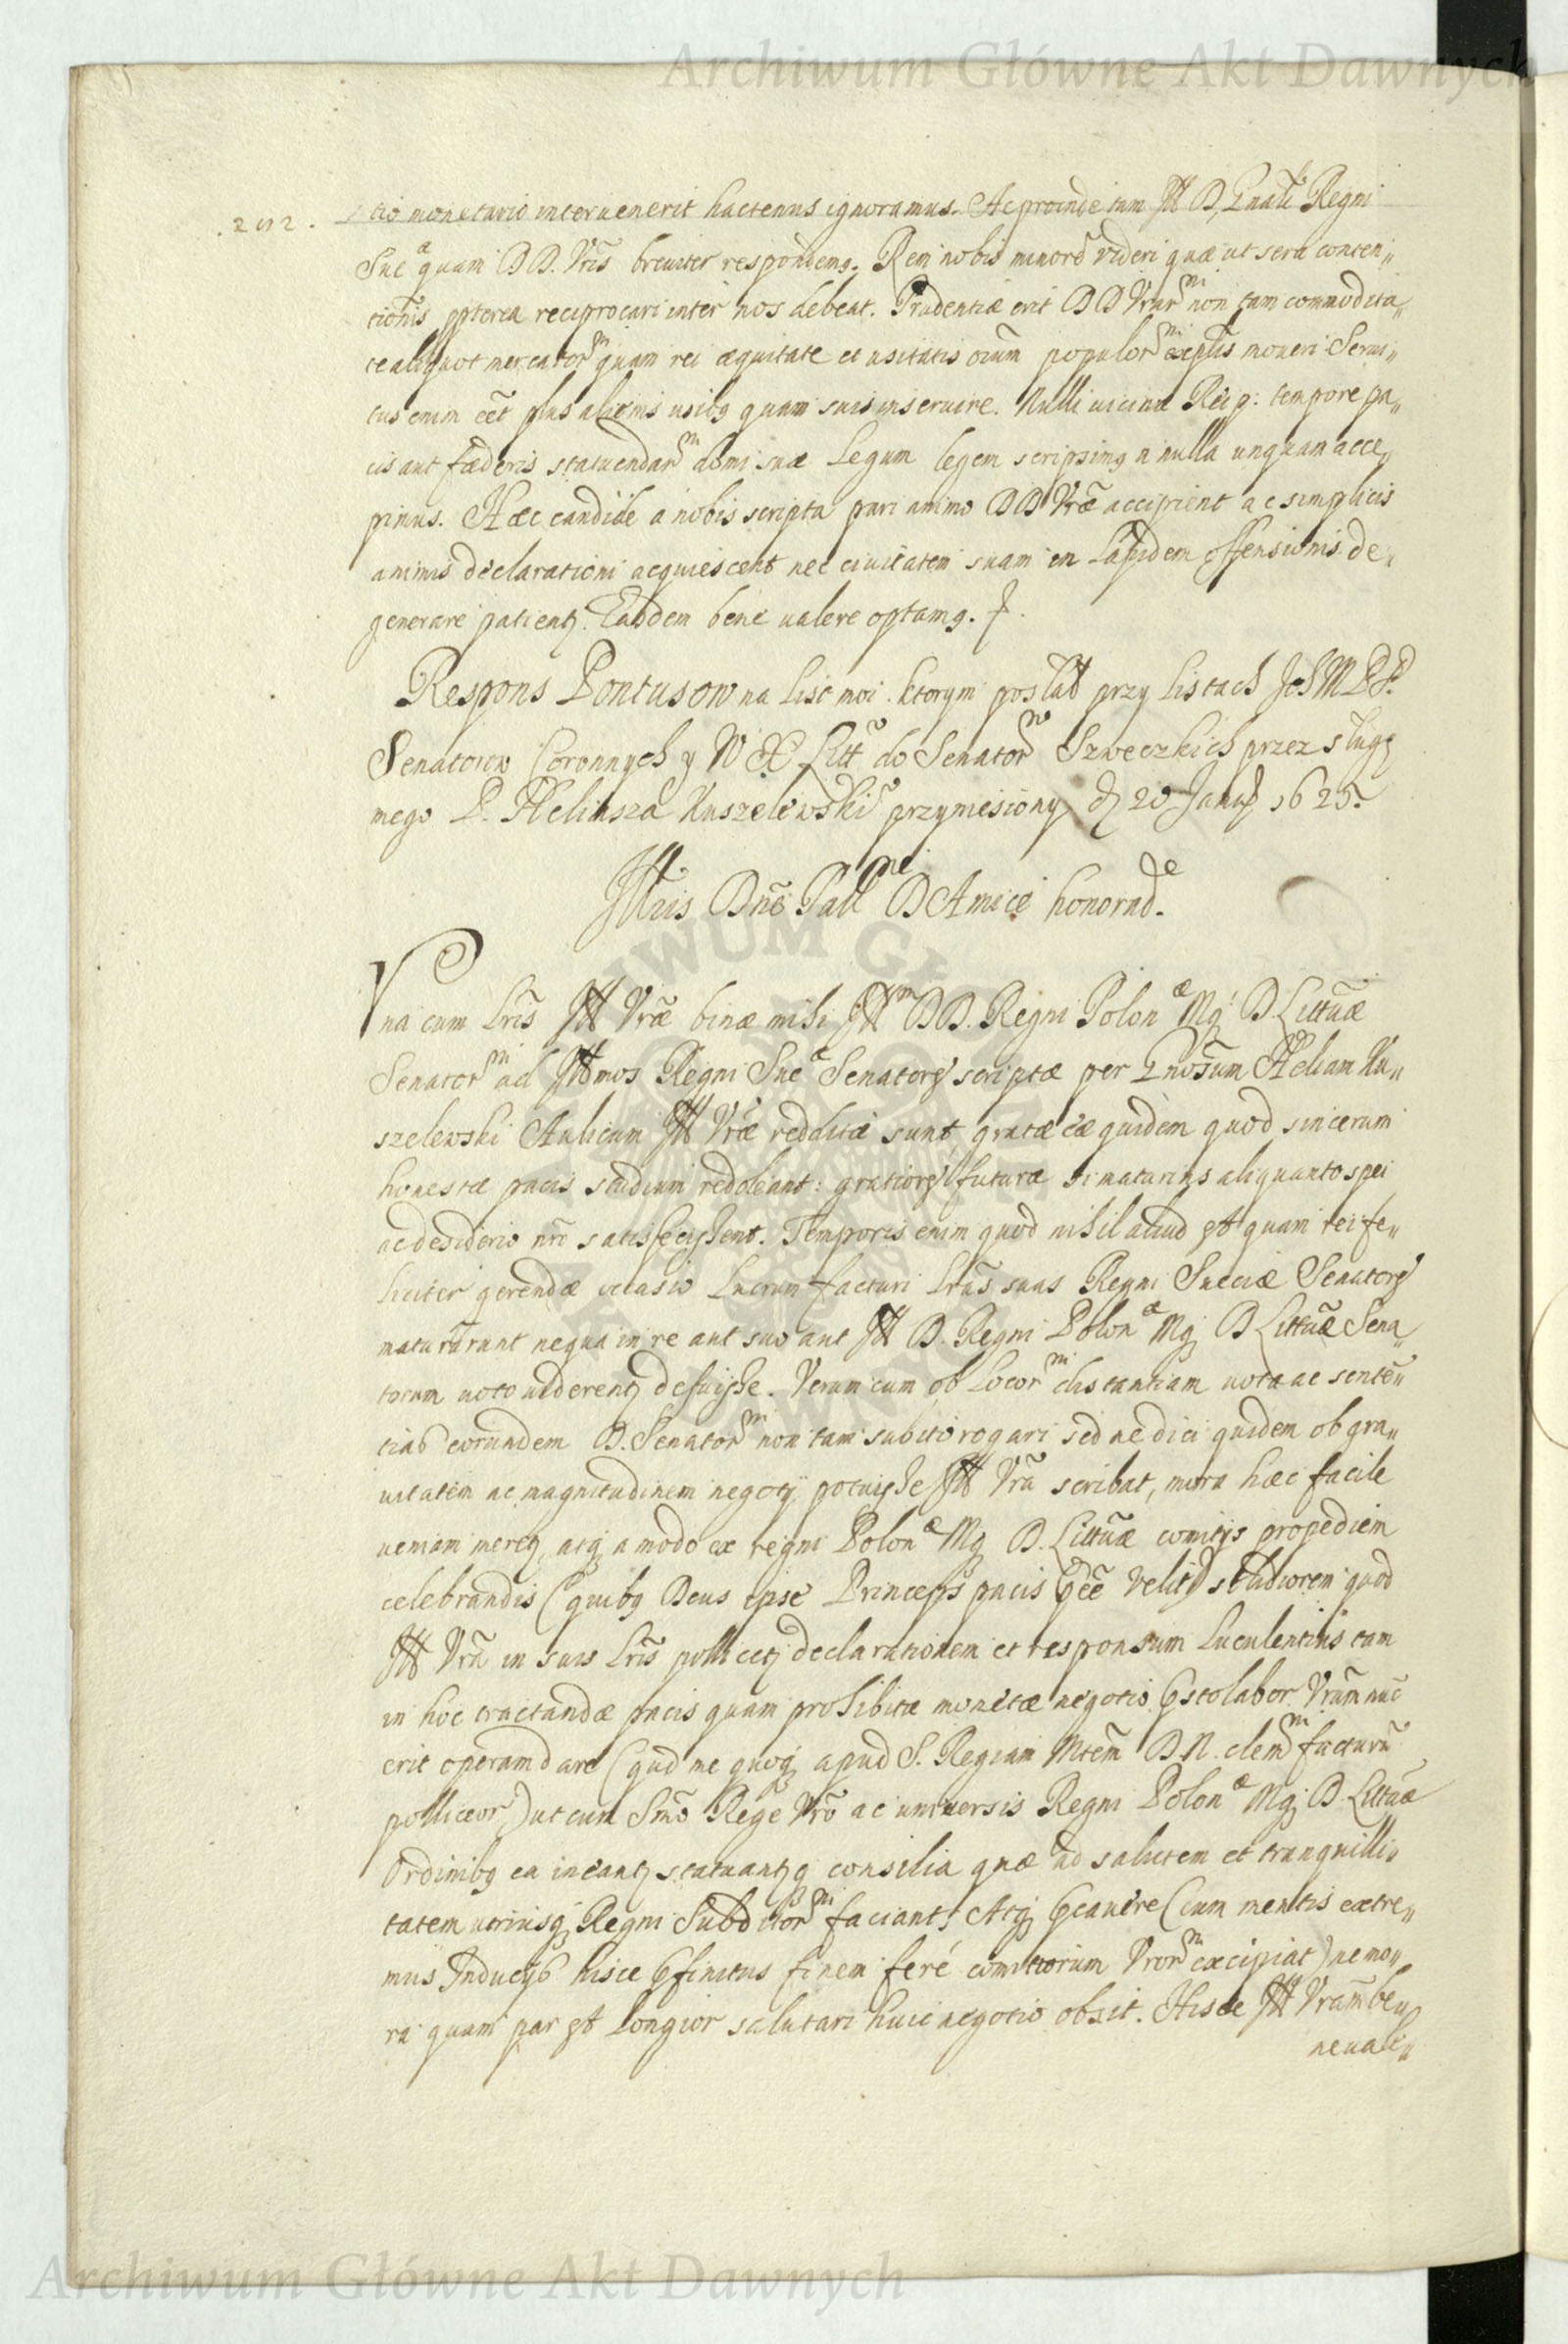 Archiwum Główne Akt Dawnych
.292.
tio monetario interuenerit hactenus ignoramus. Ac proinde tam Ill D, Gnali Regni
Sueæ quam DD. Vris breuiter respondemg. Rem nobis minorẽ videri quæ ut sera conten„
tionis ppterea reciprocari inter nos debeat. Prudentiæ erit DD Vrarm non tam commodita„
te aliquot mercatorm quam rei æquitate et usitatis oium populorm exeplis moueri Serui„
tus enim eẽt plus alienis usibg quam suis inseruire. Nulli uicinæ Reip: tempore pa„
cis aut fæderis statuendarm domi suæ Legum legem scripsimg a nulla unquam acce„
pimus. Hæc candide a nobis scripta pari animo DD Vræ accipient ac simplicis
animis declarationi acquiescent nec ciuitatem suam in Lapidem offensionis de„
generare patientz. Easdem bene ualere optamg. f.
Respons Pontusow na list moi. ktorym posłał przy listach JchM PP.
Senatorow Coronnych y W X Litto do Senatorw Szweczkich przez sługę
mego P. Heliasza Kuszelewskio przyniesiony d 20 Januarij 1625.
Illris Dñe Pall ne D Amice honorade.
Vna cum Lris Ill Vræ binæ mihi Illm DD. Regni Polonæ Mg D. Littuæ
Senatorm ad Illmos Regni Sueæ Senatores scriptæ per Gnosum Heliam Ku„
szelewski Aulicum Ill Vræ redditæ sunt, gratæ eæ quidem quod sincerum
honestæ pacis studium redoleant: gratiores futuræ si maturius aliquanto spei
ac desiderio nri satisfecissent. Temporis enim quod nihil aliud est quam rei fe„
liciter gerendæ occasio Lucrum facturi Lras suas Regni Sueciæ Senatores
maturarunt nequa in re aut suo aut Ill D. Regni Polonæ Mg D Littuæ Sena„
torum uoto uiderentz defuisse. Verum cum ob Locorm distantiam uota ac sentẽ„
tias eorundem D. Senatorm non tam subito rogari sed ne dici quidem ob gra„
uitatem ac magnitudinem negotij potuisse Ill Vra scribat, mora hæc facile
ueniam meretz, atq a modo ex regni Polonæ Mg D. Littuæ comitijs propediem
celebrandis (quibg Deus ipse Princeps pacis pẽẽ velit) solidiorem quod
Ill Vra in suis Lris pollicetz declarationem et responsum Luculentius tam
in hoc tractandæ pacis quam prohibitæ monetæ negotio Pstolabor. Vram nũc
erit operam dare (qud me quoq apud S. Regiam Mtem D N. clemm facturũ
polliceor) ut cum Smo Rege Vro ac uniuersis Regni Polonæ Mg D Littuæ
Ordinibg ea ineantz statuantzq consilia quæ ad salutem et tranquilli„
tatem utriusq Regni Subditorm faciant. Atq Pcauere (cum mensis extre„
mus Inducijs hisce Pfinitus finem feré comitiorum Vrorm excipiat) ne mo„
ra quam par est longior salutari huic negotio obsit. Hisce Ill Vram be„
ne uale„
Archiwum Główne Akt Dawnych